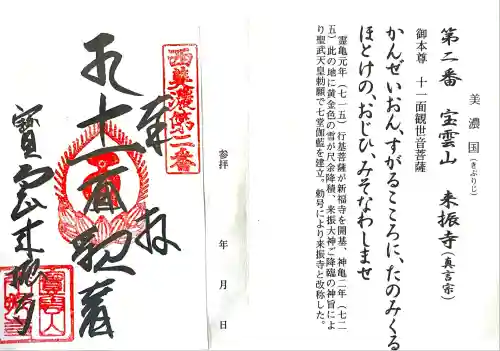 美濃国（きぶりじ）
第二番 宝雲山 来振寺（真言宗）
御本尊 十一面観世音菩薩
かんぜいおん、すがるこころに、たのみくる
ほとけの、おじひ、みそなわしませ
霊亀元年（七一五）行基菩薩が新福寺を開基、神亀二年（七二
五）此の地に黄金色の雪が尺余降積、来振大神ご降臨の神旨によ
り聖武天皇勅願で七堂伽藍を建立。勅号により来振寺と改称した。
参拝 年 月 日
西美濃第二番
奉拝
十一面観音
寶雲山来振寺